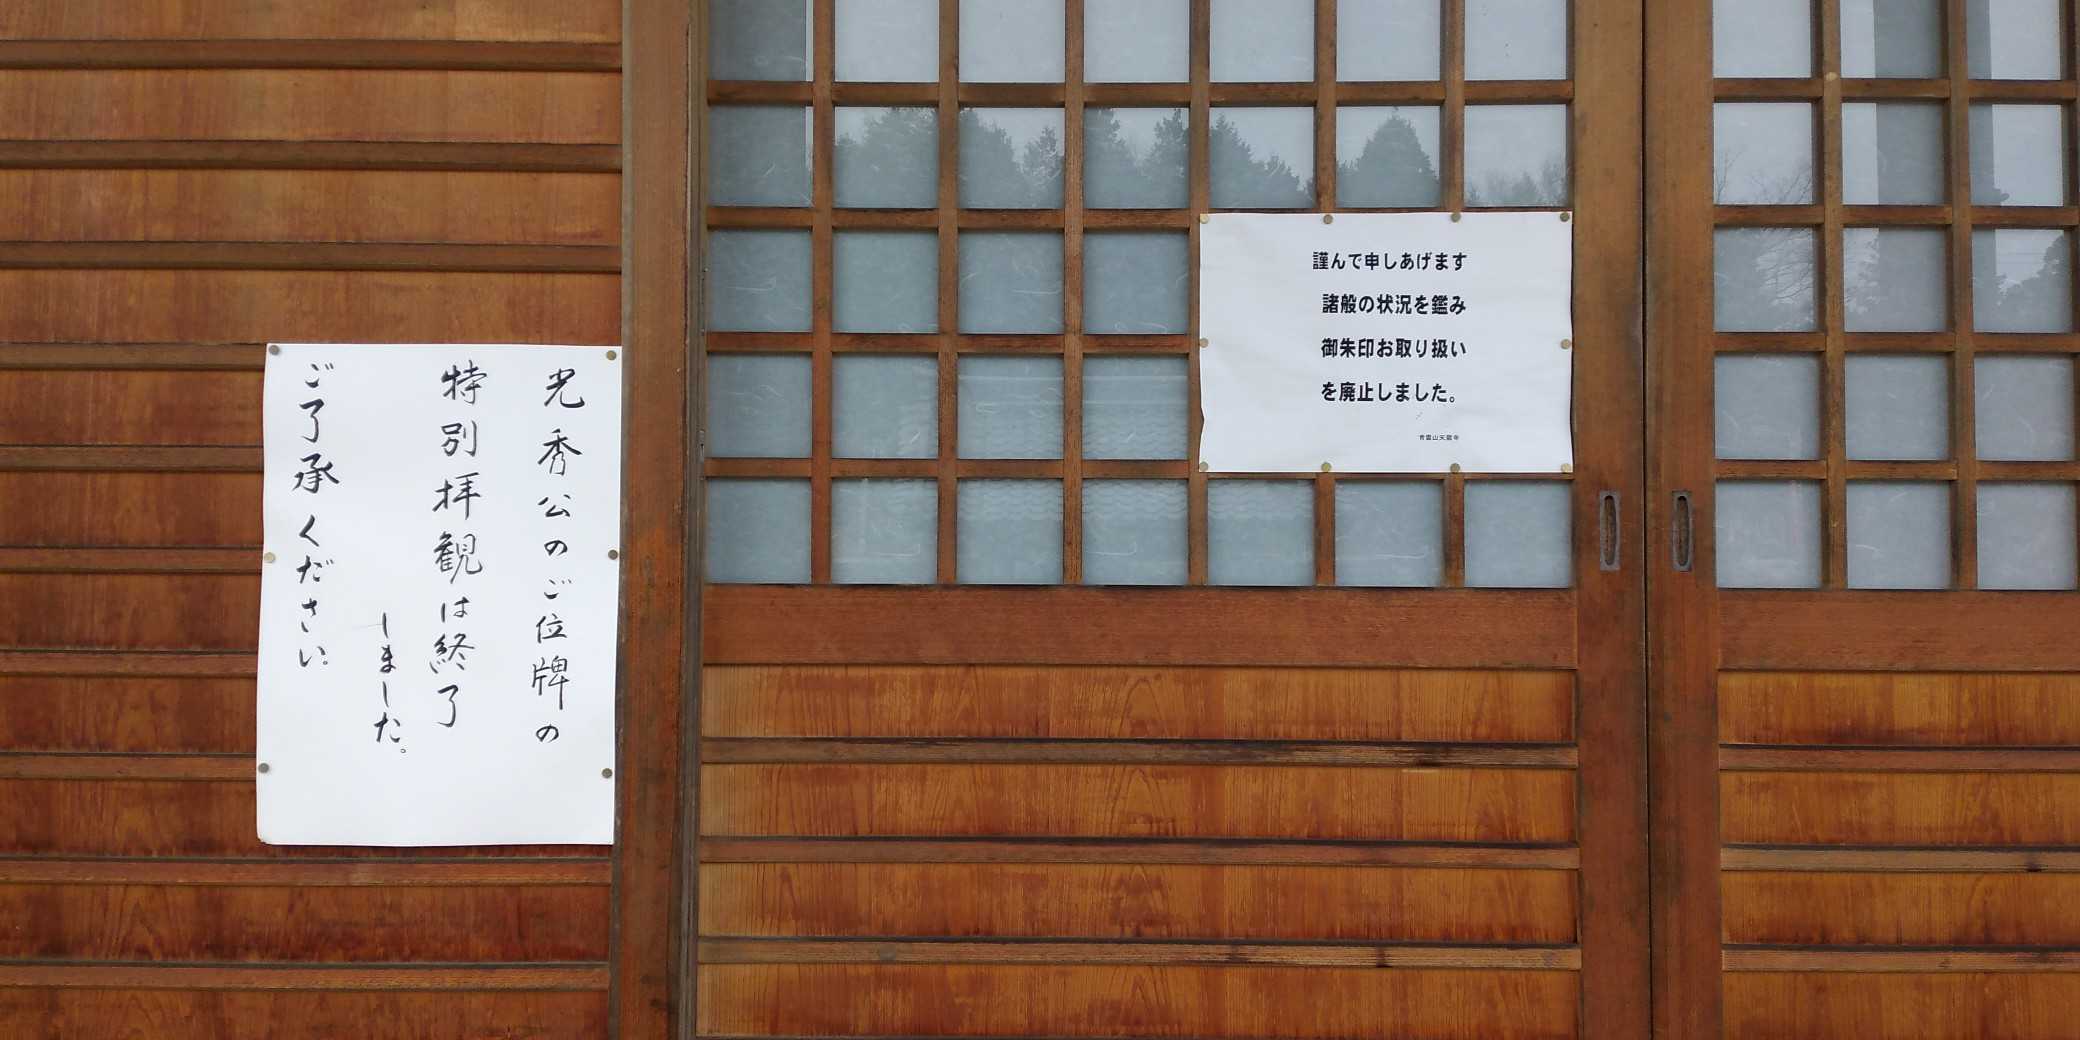 光秀公のご位牌の
特別拝観は終了
しました。
ご了承ください。
謹んで申しあげます
諸般の状況を鑑み
御朱印お取り扱い
を廃止しました。
青雲山天龍寺